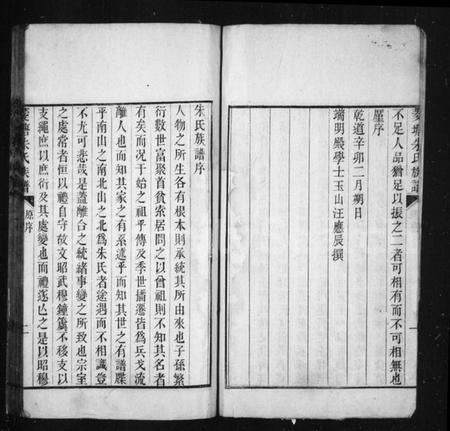 不足人品猶足以振之二者可相有而不可相無也
謹序
乾道辛卯二月朔日
端明殿學士玉山汪應辰撰
朱氏族譜序
人物之所生各有根本則承統其所由來也子孫繁
衍數世富聚首貧索居問之以曾祖則不知其名者
有矣而况于始之祖乎傳及季世播遷皆為兵戈流
離人也而知其家之有系遠乎而知其世之有譜牒
乎南山之北之南北山之北為朱氏者途遇而不相識豈
不尤可悲哉是蓋離合之統緒事變之所致也宗室
之處常者恒以禮自守故文昭武穆鐘簴不移支以
支繩庶以庶衍及其處變也而禮遂亾之是以昭穆
朱氏族譜
原序
一